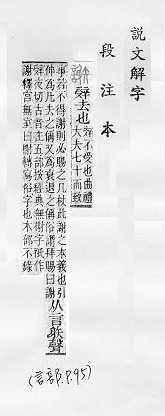 說文解字
段注本
辤去也辤不受也曲禮
大夫七十而致
事若不得謝則必賜之几杖此謝之本義也引
伸為凡去之偁又為衰退之偁俗謂拜賜曰謝
从言䠶聲
辤夜切古音在五部按經典無榭字衹作
謝釋宮無室曰榭轉寫俗字也木部不錄
(言部.P.95)